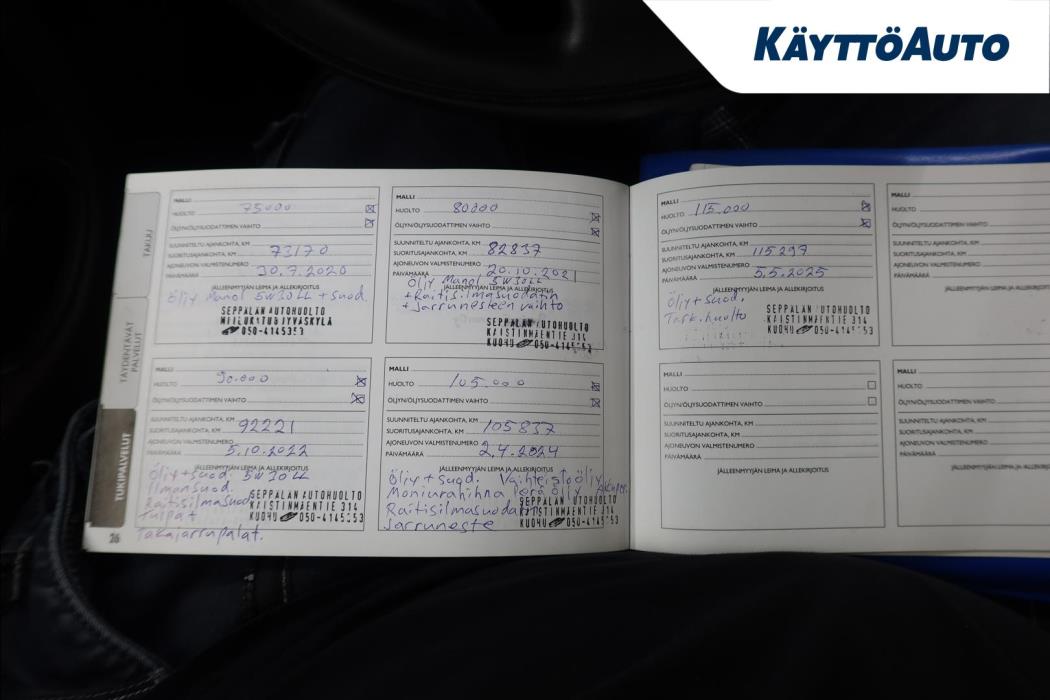 KÄYTTÖAUTO
TAKUU
TÄYDENTÄVÄT PALVELUT
TUKIPALVELUT
26
MALLI
HUOLTO 75000
ÖLJYN/ÖLJYSUODATTIMEN VAIHTO
SUUNNITELTU AJANKOHTA, KM
SUORITUSAJANKOHTA, KM 73170
AJONEUVON VALMISTENUMERO
PÄIVÄMÄÄRÄ 30.7.2020
JÄLLEENMYYJÄN LEIMA JA ALLEKIRJOITUS
Öljy Manol 5W30LL + suod.
SEPPÄLÄN AUTOHUOLTO
JYVÄSKYLÄ
050-4145353
MALLI
HUOLTO 80000
ÖLJYN/ÖLJYSUODATTIMEN VAIHTO
SUUNNITELTU AJANKOHTA, KM
SUORITUSAJANKOHTA, KM 82837
AJONEUVON VALMISTENUMERO
PÄIVÄMÄÄRÄ 20.10.2021
JÄLLEENMYYJÄN LEIMA JA ALLEKIRJOITUS
Öljy Manol 5W30LL
+Raitisilmasuodatin
+Jarrunesteen vaihto
SEPPÄLÄN AUTOHUOLTO
KAISTINMÄENTIE 314
KUOHU 050-4145353
MALLI
HUOLTO 90.000
ÖLJYN/ÖLJYSUODATTIMEN VAIHTO
SUUNNITELTU AJANKOHTA, KM
SUORITUSAJANKOHTA, KM 92221
AJONEUVON VALMISTENUMERO
PÄIVÄMÄÄRÄ 5.10.2022
JÄLLEENMYYJÄN LEIMA JA ALLEKIRJOITUS
Öljy+suod. 5W30LL
Ilmansuod.
Raitisilmasuod
Tulpat
Takajarrupalat.
SEPPÄLÄN AUTOHUOLTO
KAISTINMÄENTIE 314
KUOHU 050-4145353
MALLI
HUOLTO 105.000
ÖLJYN/ÖLJYSUODATTIMEN VAIHTO
SUUNNITELTU AJANKOHTA, KM
SUORITUSAJANKOHTA, KM 105837
AJONEUVON VALMISTENUMERO
PÄIVÄMÄÄRÄ 2.4.2024
JÄLLEENMYYJÄN LEIMA JA ALLEKIRJOITUS
Öljy+suod. Vaihteistoöljy
Moniurahihna Perä öljy
Raitisilmasuodatin
Jarruneste
SEPPÄLÄN AUTOHUOLTO
KAISTINMÄENTIE 314
KUOHU 050-4145353
MALLI
HUOLTO 115.000
ÖLJYN/ÖLJYSUODATTIMEN VAIHTO
SUUNNITELTU AJANKOHTA, KM
SUORITUSAJANKOHTA, KM 115297
AJONEUVON VALMISTENUMERO
PÄIVÄMÄÄRÄ 5.5.2025
JÄLLEENMYYJÄN LEIMA JA ALLEKIRJOITUS
Öljy+suod.
Tark.huolto
SEPPÄLÄN AUTOHUOLTO
KAISTINMÄENTIE 314
KUOHU 050-4145353
MALLI
HUOLTO
ÖLJYN/ÖLJYSUODATTIMEN VAIHTO
SUUNNITELTU AJANKOHTA, KM
SUORITUSAJANKOHTA, KM
AJONEUVON VALMISTENUMERO
PÄIVÄMÄÄRÄ
JÄLLEENMYYJÄN LEIMA JA ALLEKIRJOITUS
MALLI
HUOLTO
ÖLJYN/ÖLJYSUODATTIMEN VAIHTO
SUUNNITELTU AJANKOHTA, KM
SUORITUSAJANKOHTA, KM
AJONEUVON VALMISTENUMERO
PÄIVÄMÄÄRÄ
JÄLLEENMYYJÄN LEIMA JA ALLEKIRJOITUS
MALLI
HUOLTO
ÖLJYN/ÖLJYSUODATTIMEN VAIHTO
SUUNNITELTU AJANKOHTA, KM
SUORITUSAJANKOHTA, KM
AJONEUVON VALMISTENUMERO
PÄIVÄMÄÄRÄ
JÄLLEENMYYJÄN LEIMA JA ALLEKIRJOITUS